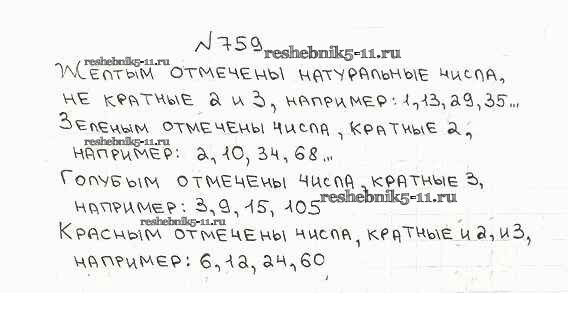 №759
reshebnik5-11.ru
reshebnik5-11.ru
Желтым отмечены натуральные числа,
не кратные 2 и 3, например: 1, 13, 29, 35...
Зеленым отмечены числа, кратные 2,
reshebnik5-11.ru
например: 2, 10, 34, 68...
Голубым отмечены числа, кратные 3,
reshebnik5-11.ru
например: 3, 9, 15, 105
reshebnik5-11.ru
Красным отмечены числа, кратные и 2, и 3,
например: 6, 12, 24, 60